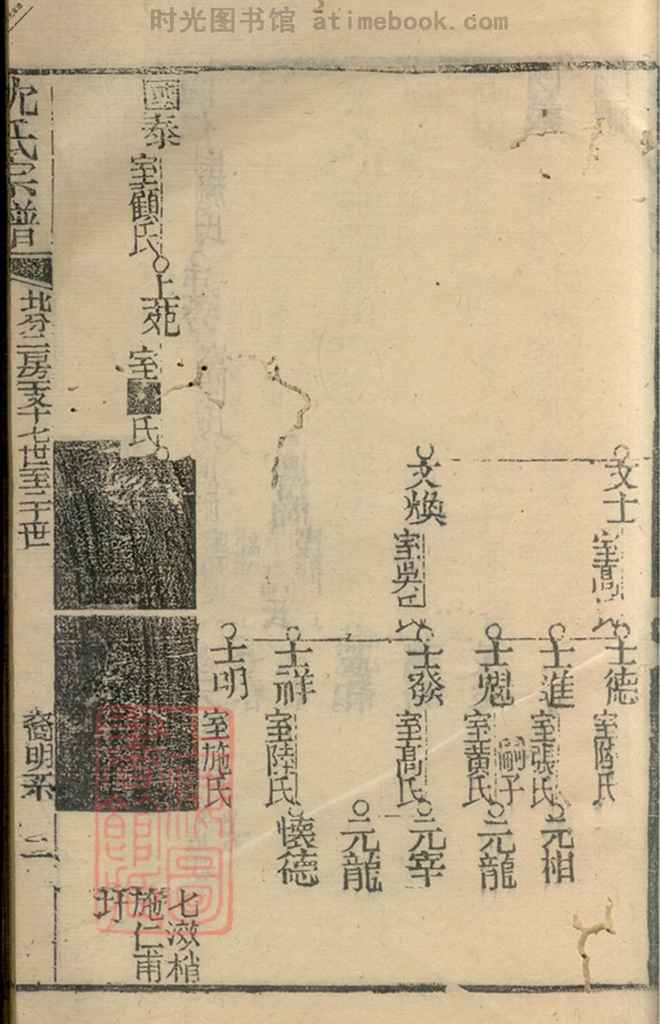 时光图书馆 atimebook.com
文士
室高氏
士德
士進
室張氏
嗣子
元相
士魁
室黃氏
元龍
文煥
室吳氏
士發
室高氏
元宰
元龍
士祥
室陸氏
懷德
士明
室施氏
七漖梢
施仁甫
圩
國泰
室顧氏
上苑
沈氏宗譜
北分二房五支十七世至二十世
裔明系
二